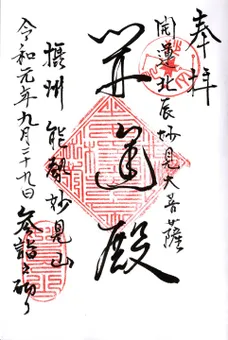 奉拝
開運北辰妙見大菩薩
開運殿
摂州能勢妙見山
令和元年九月二十九日
参詣之砌り